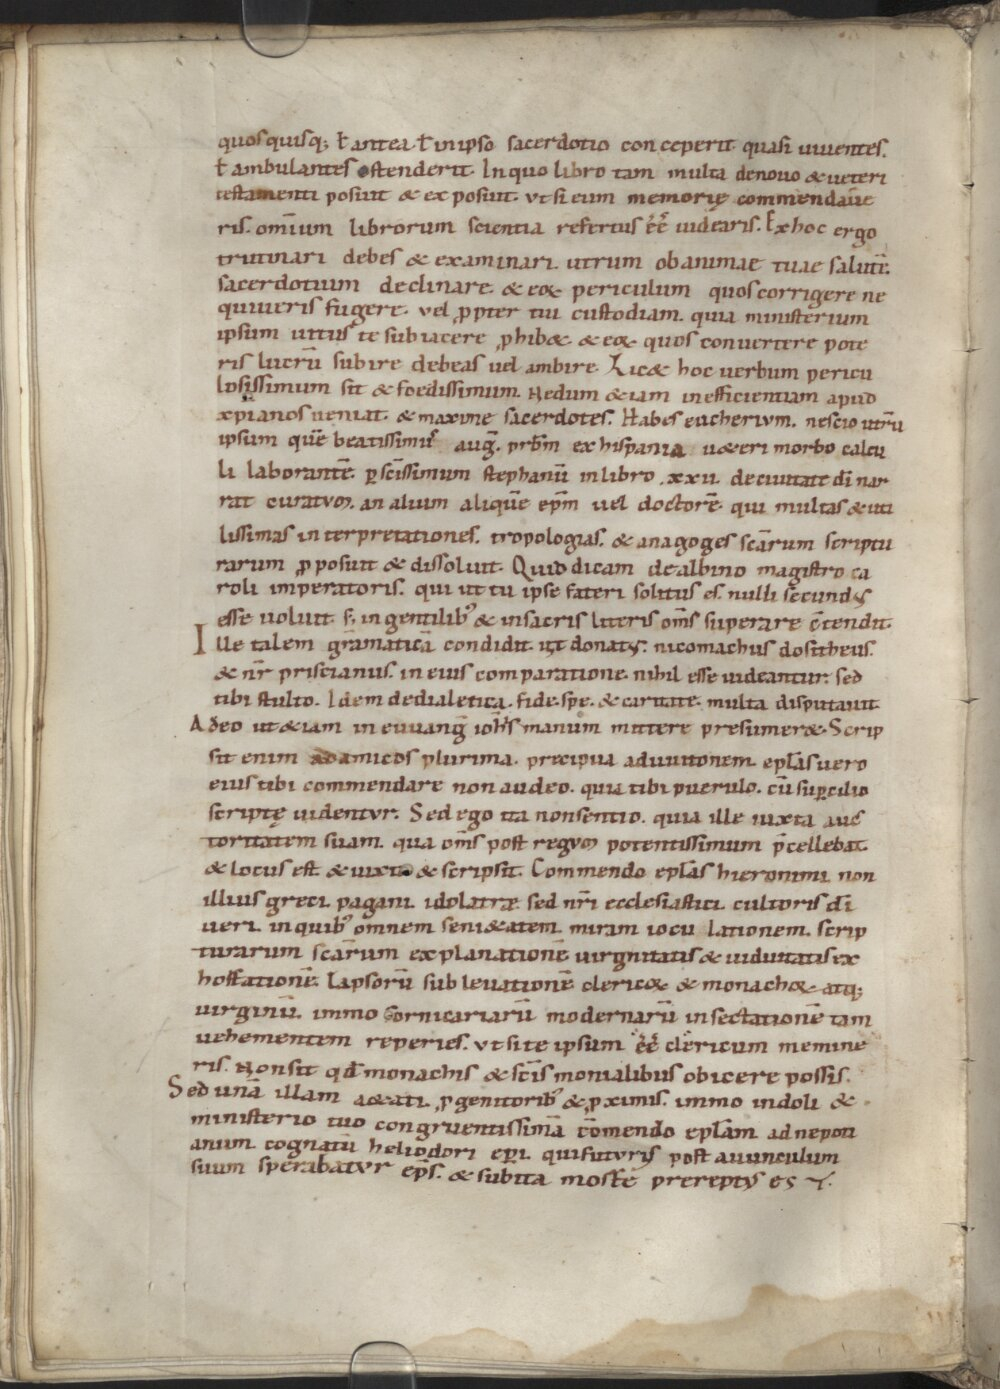 quos quisq; ƚ antea ƚ in ipso sacerdotio conceperit quasi uiuentes.
ƚ ambulantes ostenderit. In quo libro tam multa denouo & ueteri
testamenti posuit & exposuit. ut si eum memorię commendaue
ris. om̄ium librorum scientia refertus ēē uidearis. Ex hoc ergo
trutinari debes & examinari. utrum ob animae tuae salutē.
sacerdotium declinare. & eoꝝ periculum quos corrigere ne
quiueris fugere. vel ꝓpter tui custodiam. quia ministerium
ipsum uitiis te subiacere ꝓhib&. & eoꝝ quos conuertere pote
ris lucrū subire debeas uel ambire. Lic& hoc verbum pericu
losissimum sit & foedissimum. Nedum &iam in efficientiam apud
xp̄ianos ueniat. & maxime sacerdotes. Habes eucherium. nescio utrū
ipsum quē beatissimus auḡ. pr̄bm̄ ex hispania u&eri morbo calcu
li laborantē. ꝑ sc̄issimum stephanū in libro .xxii. de ciuitate dī nar
rat curatum. an alium aliquē ep̄m̄ uel doctorē. qui multas & uti
lissimas interpretationes. tropologias. & anagoges sc̄arum scriptu
rarum ꝓposuit & dissoluit. Quid dicam de albino magistro ca
roli imperatoris. qui ut tu ipse fateri solitus es. nulli secundus
esse uoluit. s; in gentilib; & in sacris literis om̄s superare c̄tendit.
Ille talem gr̄amaticā condidit. ut donatus. nicomachus dositheus.
& nr̄ priscianus. in eius comparatione. nihil esse uideantur. sed
tibi stulto. Idem de dialetica. fide. spe. & caritate. multa disputauit.
Adeo ut &iam in euuanḡ ioh̄s manum mittere presumer&. Scrip
sit enim ad amicos plurima. precipua ad uuitonem. ep̄las uero
eius tibi commendare non audeo. quia tibi puerulo. cū suꝑcilio
scriptę uidentur. Sed ego ita non sentio. quia ille iuxta auc
toritatem suam. qua om̄s post regum potentissimum p̄cellebat.
& locus est & uixit & scripsit. Commendo ep̄las hieronimi. non
illius greci. pagani. idolatrae. sed nr̄i ecclesiastici. cultoris dī
ueri. in quib; omnem seni&atem. miram ioculationem. scrip
turarum scārum explanationē. uirginitatis & uiduitatis ex
hortationē. lapsorū subleuationē clericoꝝ & monachoꝝ atq;
uirginū. immo fornicariarū modernarū insectationē tam
uehementem reperies. ut si te ipsum ēē clericum memine
ris. Non sit qđ monachis & sc̄is monialibus obicere possis.
Sed unā illam a&ati. ꝓgenitorib; & ꝓximis. immo indoli &
ministerio tuo congruentissimā c̄mendo ep̄lam ad nepoti
anum cognatū heliodori ep̄i. qui futurus post auunculum
suum sperabatur ep̄s. & subita morte prereptus es